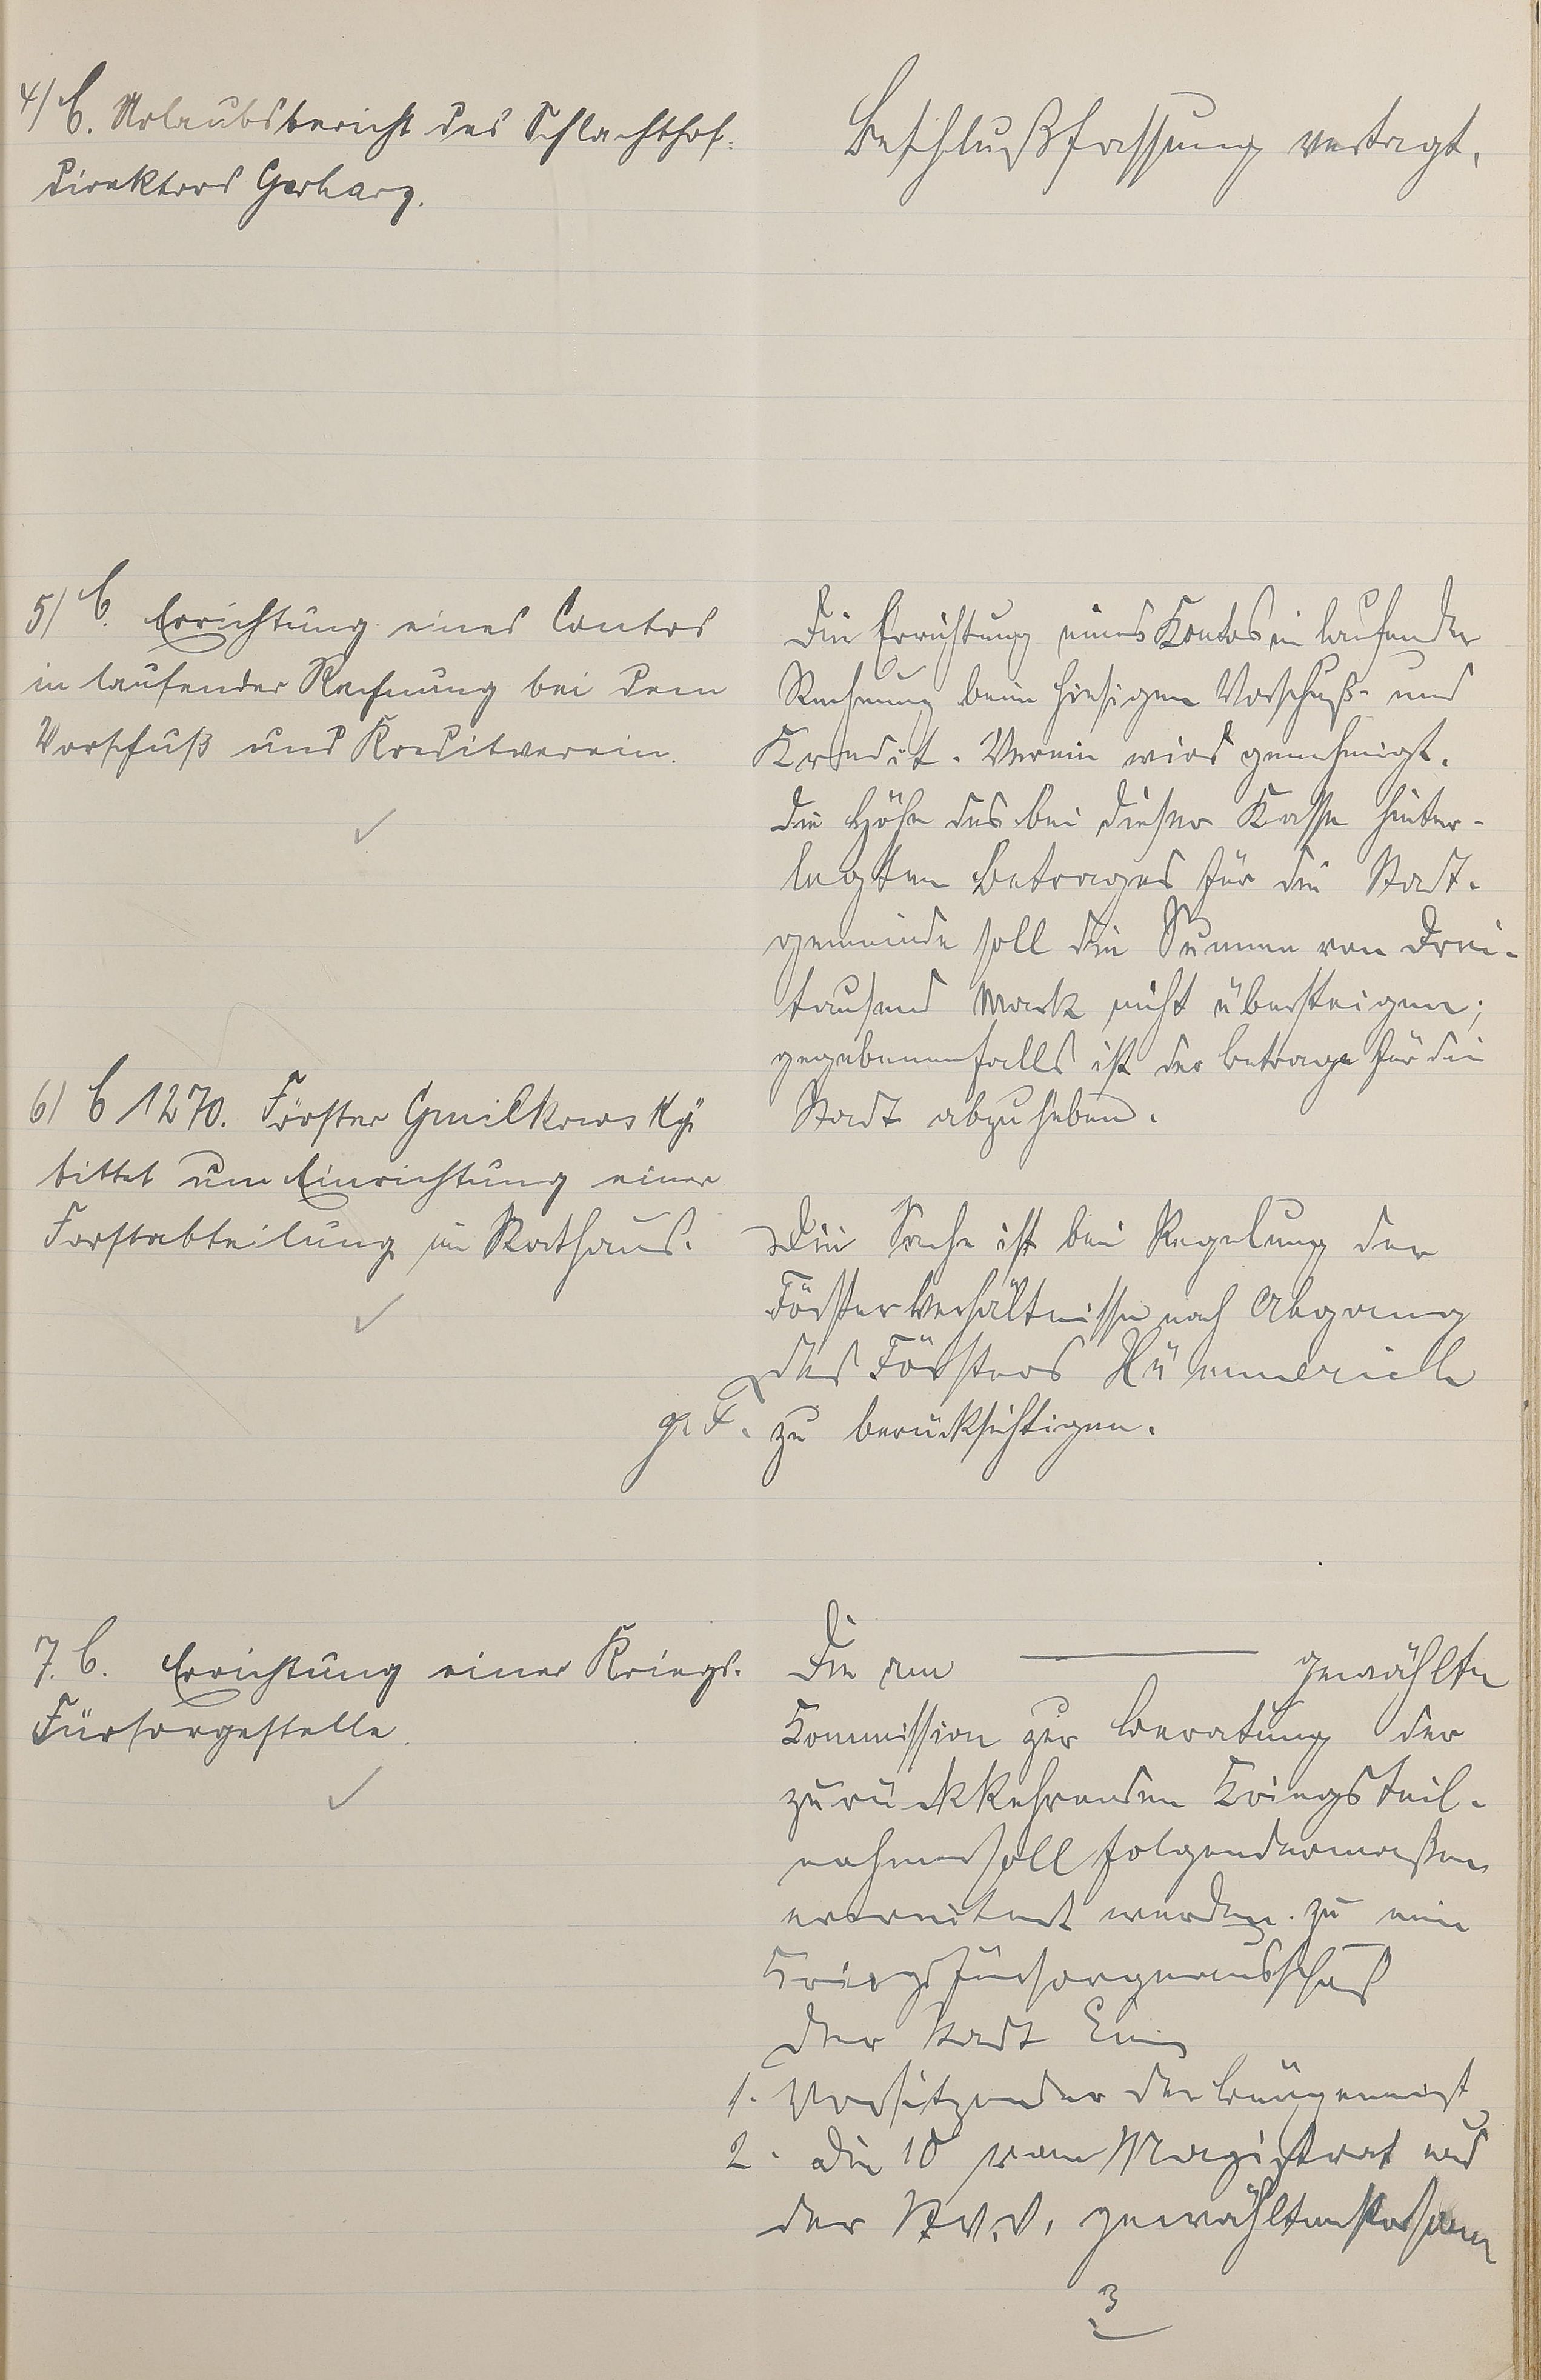 4) C. Urlaubsbericht des Schlachthof-
direktors Gerharz.
Beschlußfassung vertagt.
5) C. Errichtung eines Contos
in laufender Rechnung bei dem
Vorschuß und Kreditverein.
Die Errichtung eines Kontos in laufender
Rechnung beim hiesigen Vorschuß- und
Kredit-Verein wird genehmigt.
Die Höhe des bei dieser Kasse hinter-
legten Betrages für die Stadt-
gemeinde soll die Summe von Drei-
tausend Mark nicht übersteigen;
gegebenenfalls ist der Betrage für die
Stadt abzuheben.
6) C 1270. Förster Gmilkowsky
bittet um Einrichtung einer
Forstabteilung im Rathaus.
Die Sache ist bei Regelung der
Försterverhältnisse nach Abgang
des Försters Hümmerich
g. F. zu berücksichtigen.
7. C. Errichtung einer Kriegs-
Fürsorgestelle.
Die am gewählte
Kommission zur Beratung der
zurückkehrenden Kriegsteil-
nehmer soll folgendermaßen
erweitert werden zu ein
Kriegsfürsorgeausschuß
der Stadt Ems
1. Vorsitzender der Bürgermist
2. die 10 vom Magistrat und
der St.V.V. gewählten Personen
3